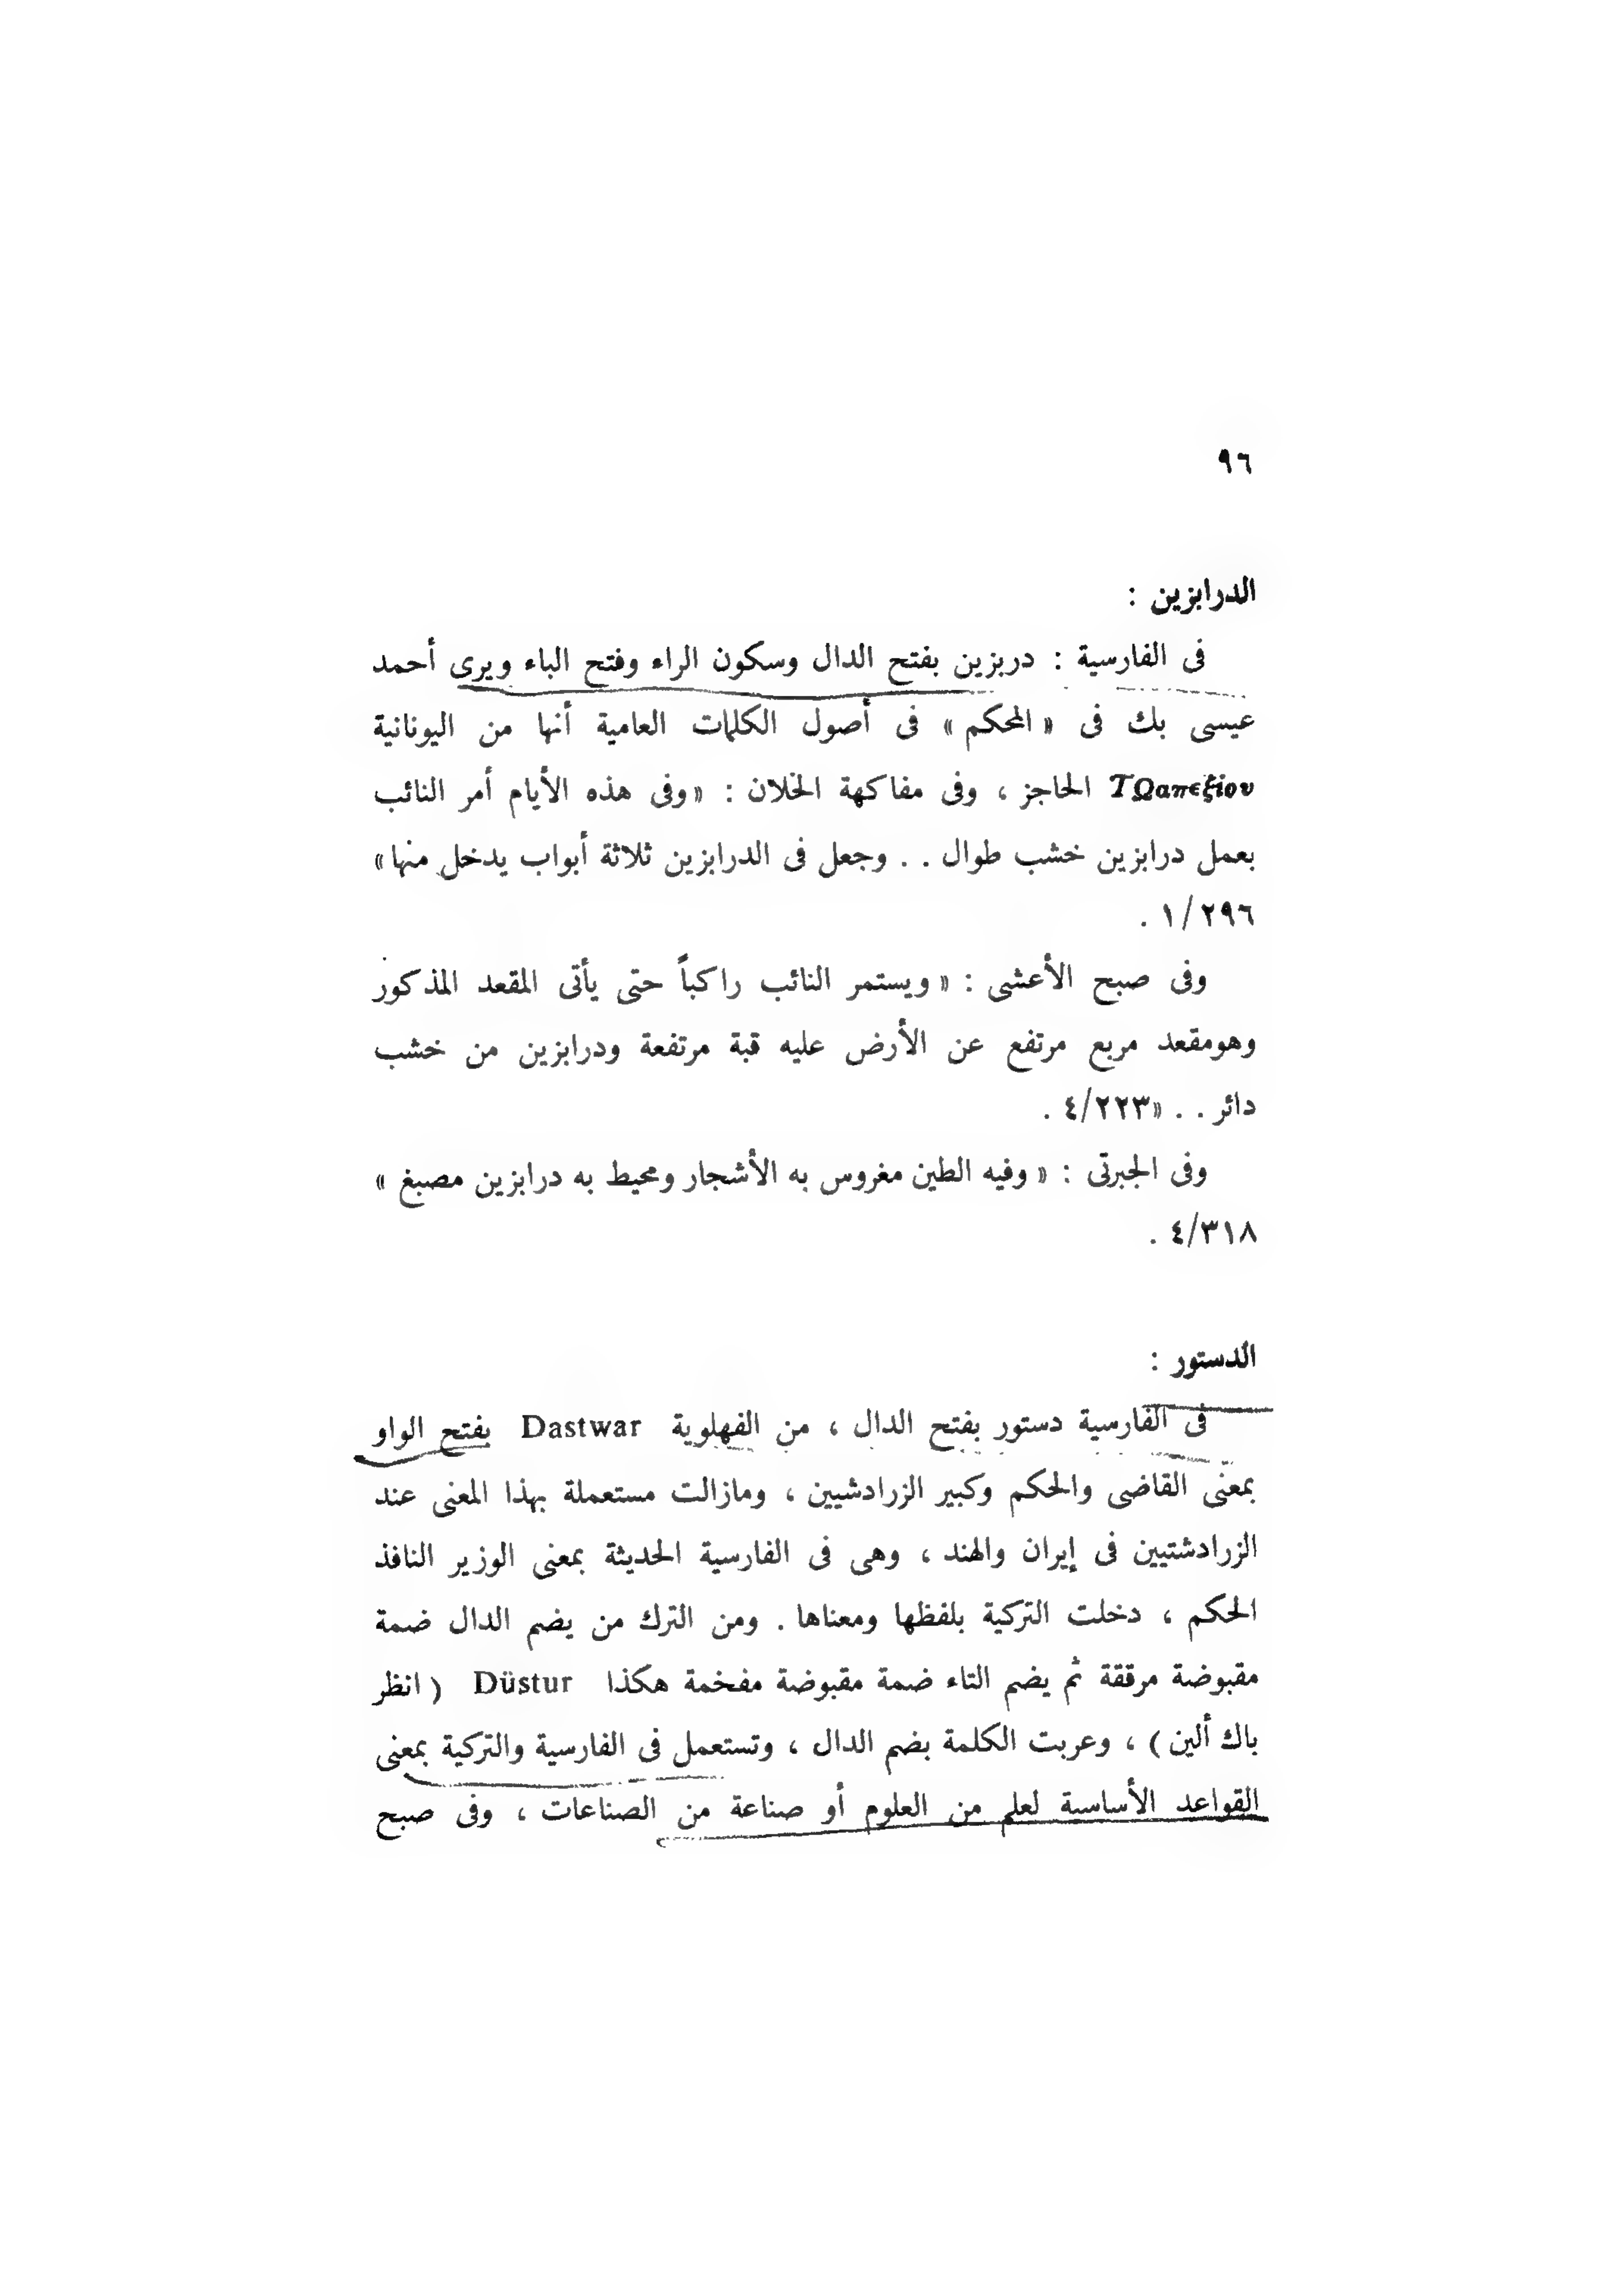 ٩٦
الدرابزين :
فى الفارسية : دربزين بفتح الدال وسكون الراء وفتح الباء ويرى أحمد
عيسى بك فى « المحكم » فى أصول الكلمات العامية أنها من اليونانية
ΤΩαπεξίου الحاجز ، وفى مفاكهة الخلان : « وفى هذه الأيام أمر النائب
بعمل درابزين خشب طوال . . وجعل فى الدرابزين ثلاثة أبواب يدخل منها »
١/٢٩٦ .
وفى صبح الأعشى : « ويستمر النائب راكباً حتى يأتى المقعد المذكور
وهومقعد مربع مرتفع عن الأرض عليه قبة مرتفعة ودرابزين من خشب
دائر . . » ٤/٢٢٣ .
وفى الجبرتى : « وفيه الطين مغروس به الأشجار ومحيط به درابزين مصبغ »
٤/٣١٨ .
الدستور :
فى الفارسية دستور بفتح الدال ، من الفهلوية Dastwar بفتح الواو
بمعنى القاضى والحكم وكبير الزرادشيين ، ومازالت مستعملة بهذا المعنى عند
الزرادشتيين فى إيران والهند ، وهى فى الفارسية الحديثة بمعنى الوزير النافذ
الحكم ، دخلت التركية بلفظها ومعناها . ومن الترك من يضم الدال ضمة
مقبوضة مرققة ثم يضم التاء ضمة مقبوضة مفخمة هكذا Düstur ( انظر
باك ألين ) ، وعربت الكلمة بضم الدال ، وتستعمل فى الفارسية والتركية بمعنى
القواعد الأساسية لعلم من العلوم أو صناعة من الصناعات ، وفى صبح